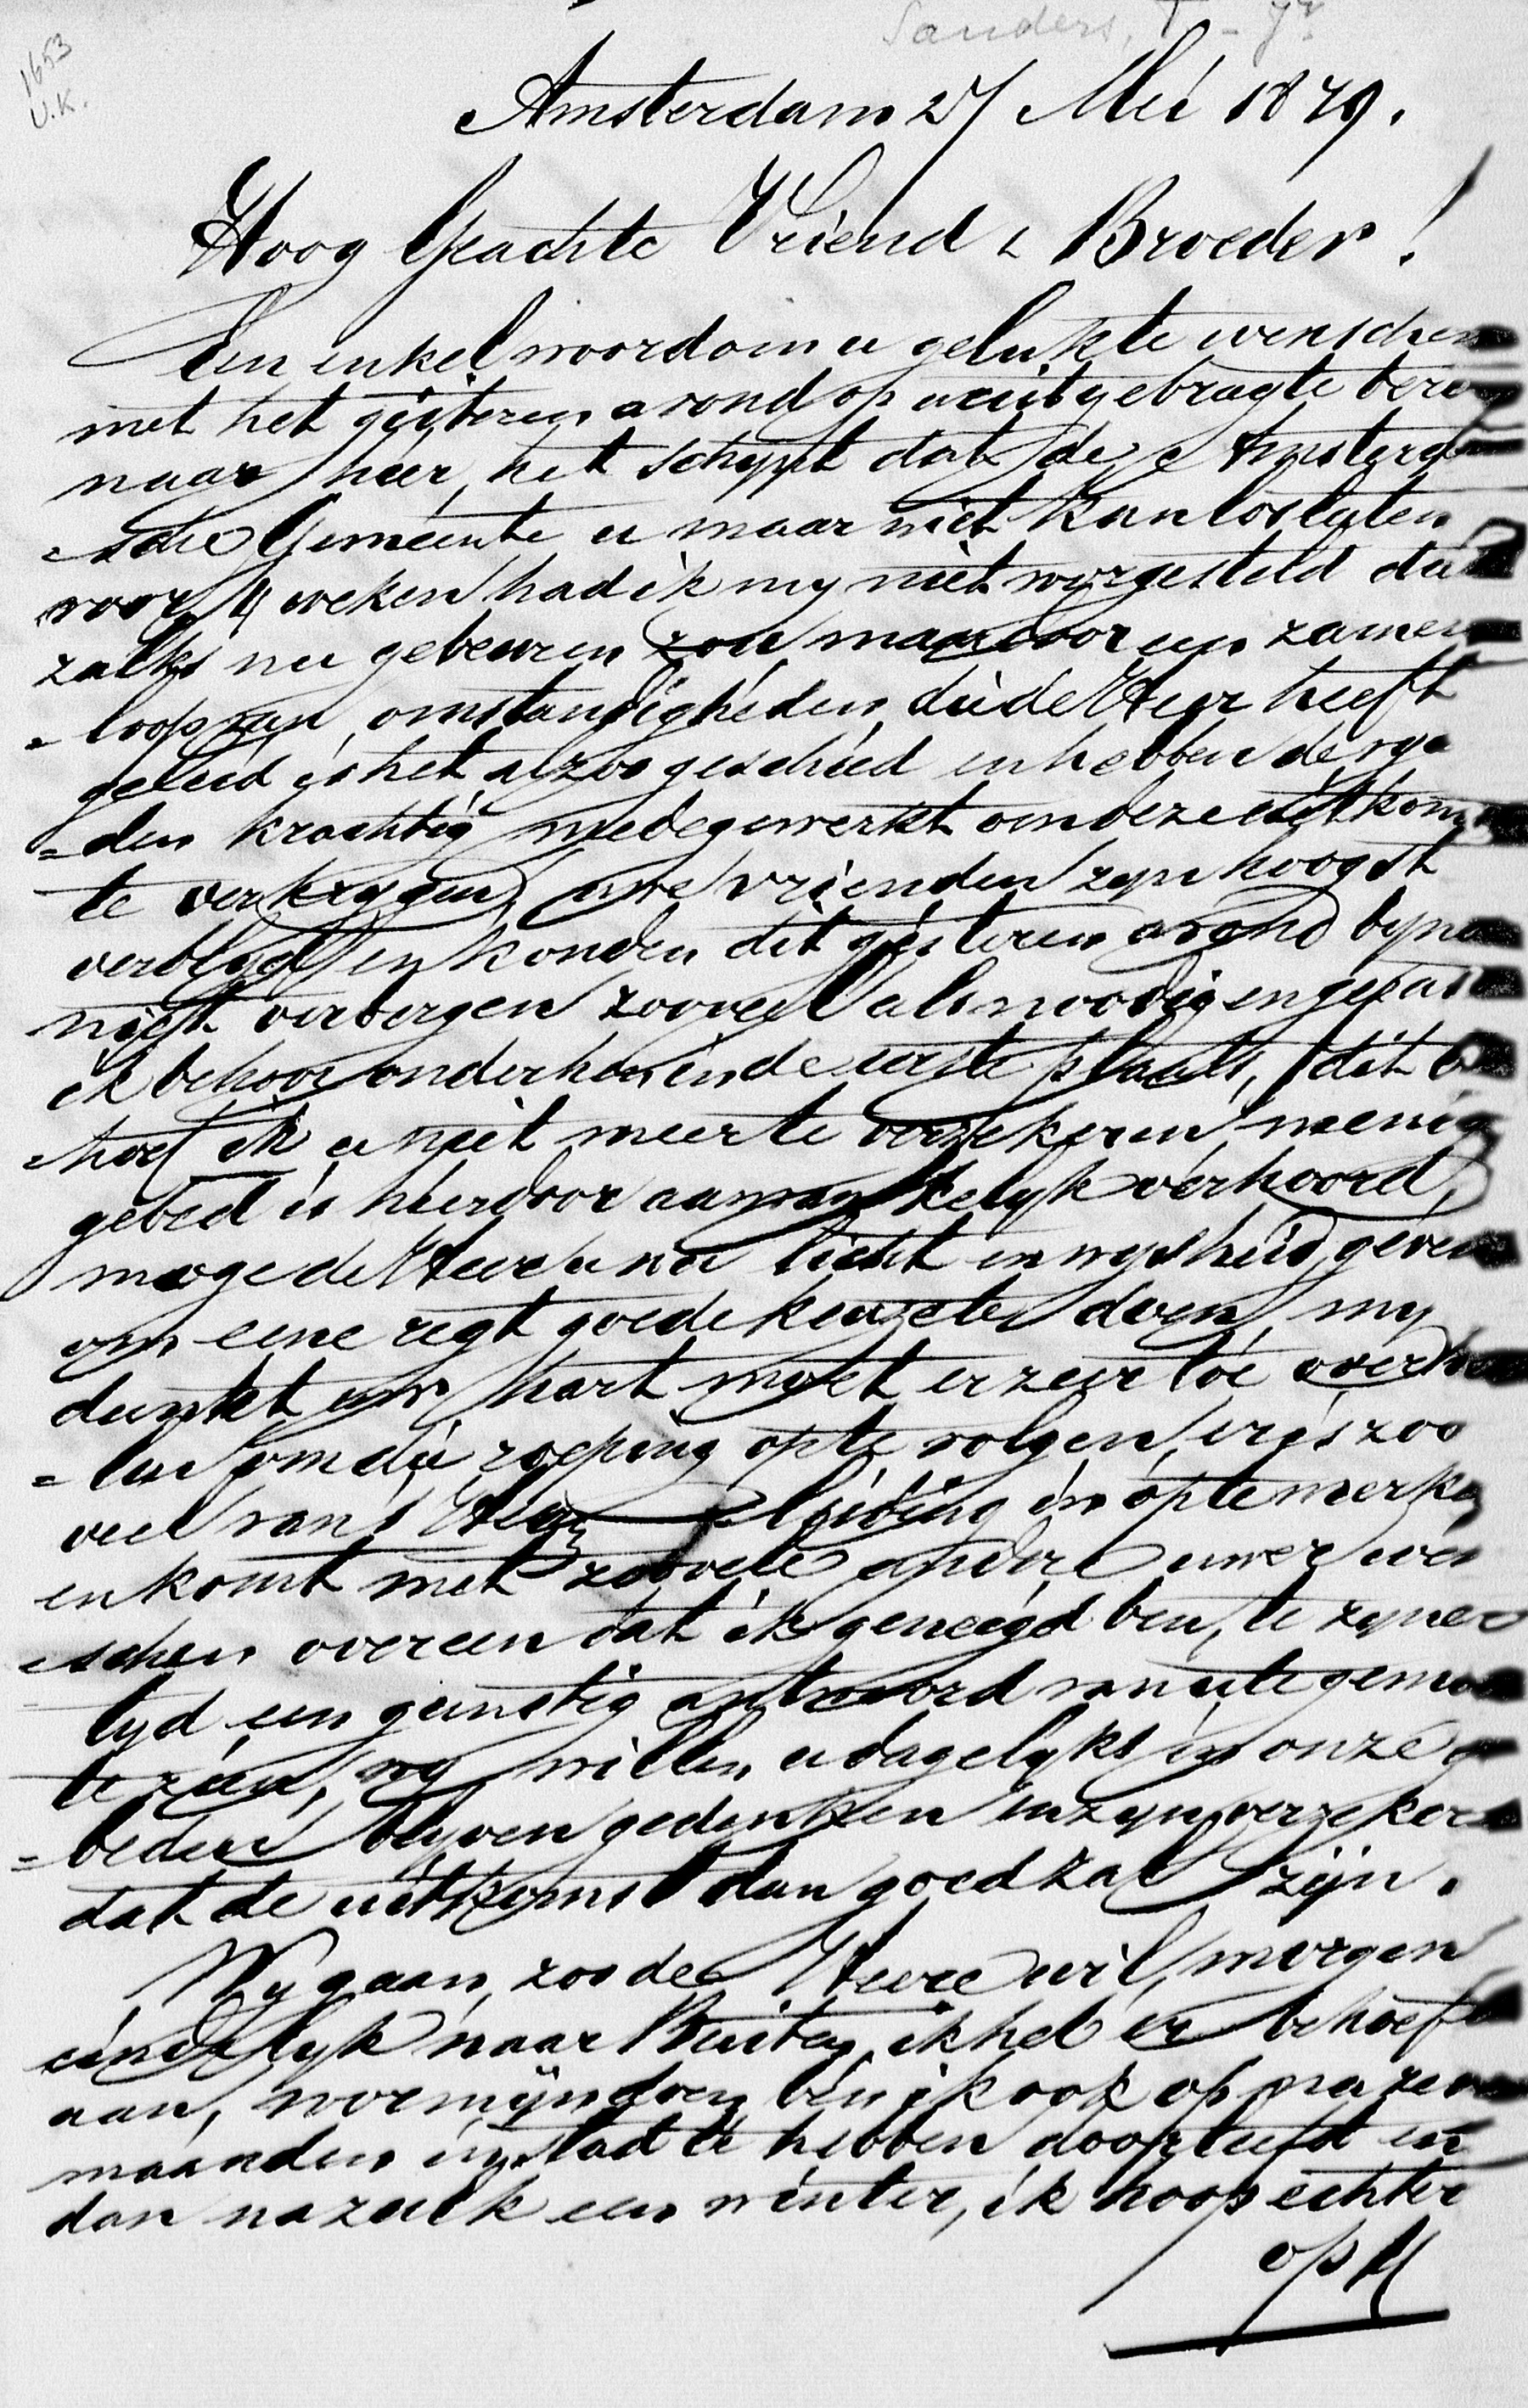 Sanders, T. Jr.
1653
U.K.
Amsterdam 27 Mei 1879.
Hoog Geachte Vriend & Broeder!
Een enkel woord om u geluk te wenschen
met het gisteren avond op u uitgebragte beroep
naar hier, het schynt dat de Amsterdam
=sche Gemeente u maar niet kan loslaten
voor 4 weken had ik my niet voorgesteld dat
zulks nu gebeuren zou maar door een zamen
=loop van omstandigheden, die de Heer heeft
geleid is het alzoo geschied en hebben de
=den krachtig medegewerkt om deze uitkomst
te verkrygen, uwe vrienden zyn hoogst
verblyd en konden dit gisteren avond byna
niet verbergen zooveel als noodig en gepast
ik behoor onder hen in de eerste plaats, dit be
=hoef ik u niet meer te verzekeren, menig
gebed is hierdoor aanvankelyk verhoord,
moge de Heer u nu licht en wysheid geven
om eene regt goede keuze te doen, my
dunkt uw hart moet er zeer toe overhel
=len om die roeping op te volgen, er is zoo
veel van 's Heeren leiding in op te merken
en komt met zoovele andere uwer wen
=schen overeen dat ik geneigd ben, te zyner
tyd een gunstig antwoord van u te gemoet
te zien, wy willen u dagelyks in onze ge
=beden blyven gedenken en zyn verzekerd
dat de uitkomst dan goed zal zijn.
Wy gaan, zoo de Heere wil, morgen
eindelyk naar Buiten, ik heb er behoefte
aan, ben ik ook op na zeven
maanden in stad te hebben doorleefd en
dan na zulk een winter, ik hoop echter
op H